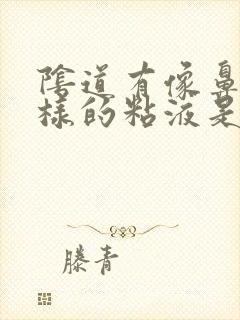 陰道有像鼻
樣的粘液是
滕青